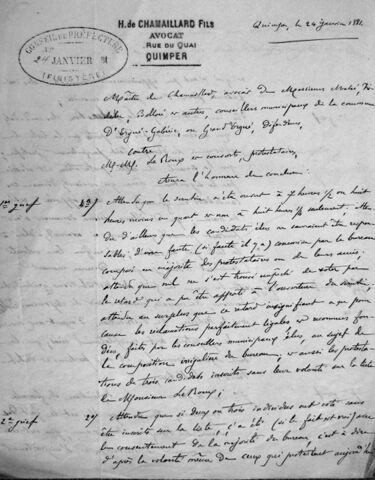 H. de CHAMAILLARD FILS
AVOCAT
RUE DU QUAI
QUIMPER
Quimper, le 24 Janvier 1881.
CONSEIL DE PRÉFECTURE
24 JANVIER 81
(FINISTÈRE)
Maître de Chamaillard, avocat de Messieurs
et autres, conseillers municipaux de la commune
d'Ergué-Gabéric, ou Grand'Ergué, défendeurs,
contre
M.M. Le Roux et consorts, protestataires,
aura l'honneur de conclure:
1er grief 1º/ Attendu que le scrutin a été ouvert à 7 heures 1/2 ou huit
heures moins un quart et non à huit heures 1/2 seulement, Atten
du d'ailleurs que les candidats élus ne sauraient être respon
sables d'une faute (si faute il y a) commise par le bureau
composé en majorité des protestataires ou de leurs amis;
attendu que nul ne s'est trouvé empêché de voter par
le retard qui a pu être apporté à l'ouverture du scrutin;
attendu au surplus que ce retard insignifiant a eu pour
cause les réclamations parfaitement légales et reconnues fon
dées, faites par les conseillers municipaux élus, au sujet de
la composition irrégulière du bureau, et aussi les protesta
tions de trois candidats inscrits sans leur volonté sur la liste
de Monsieur Le Roux;
2e grief 2º/ Attendu que si deux ou trois individus ont voté sans
être inscrits sur la liste, c'a été (si le fait est vrai) avec
le consentement de la majorité du bureau, c'est à dire
d'après la volonté même de ceux qui protestent aujourd'hui